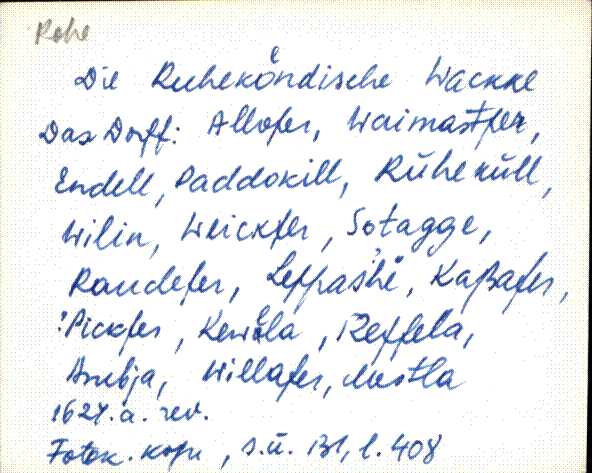 Rohe
Die Ruheköndische Wackke
Das Dorff: Allofer, Waimastfer,
Endell, Paddokill, Rüheküll,
Wilin, Weickfer, Sotagge,
Raudefer, Leppashë, Kaßafer,
Pickfer, Kewëla, Reffela,
Ambja, Willafer, Mostla
1624. a. rev.
Fotok. kopu, s.ü. Bl, l. 408